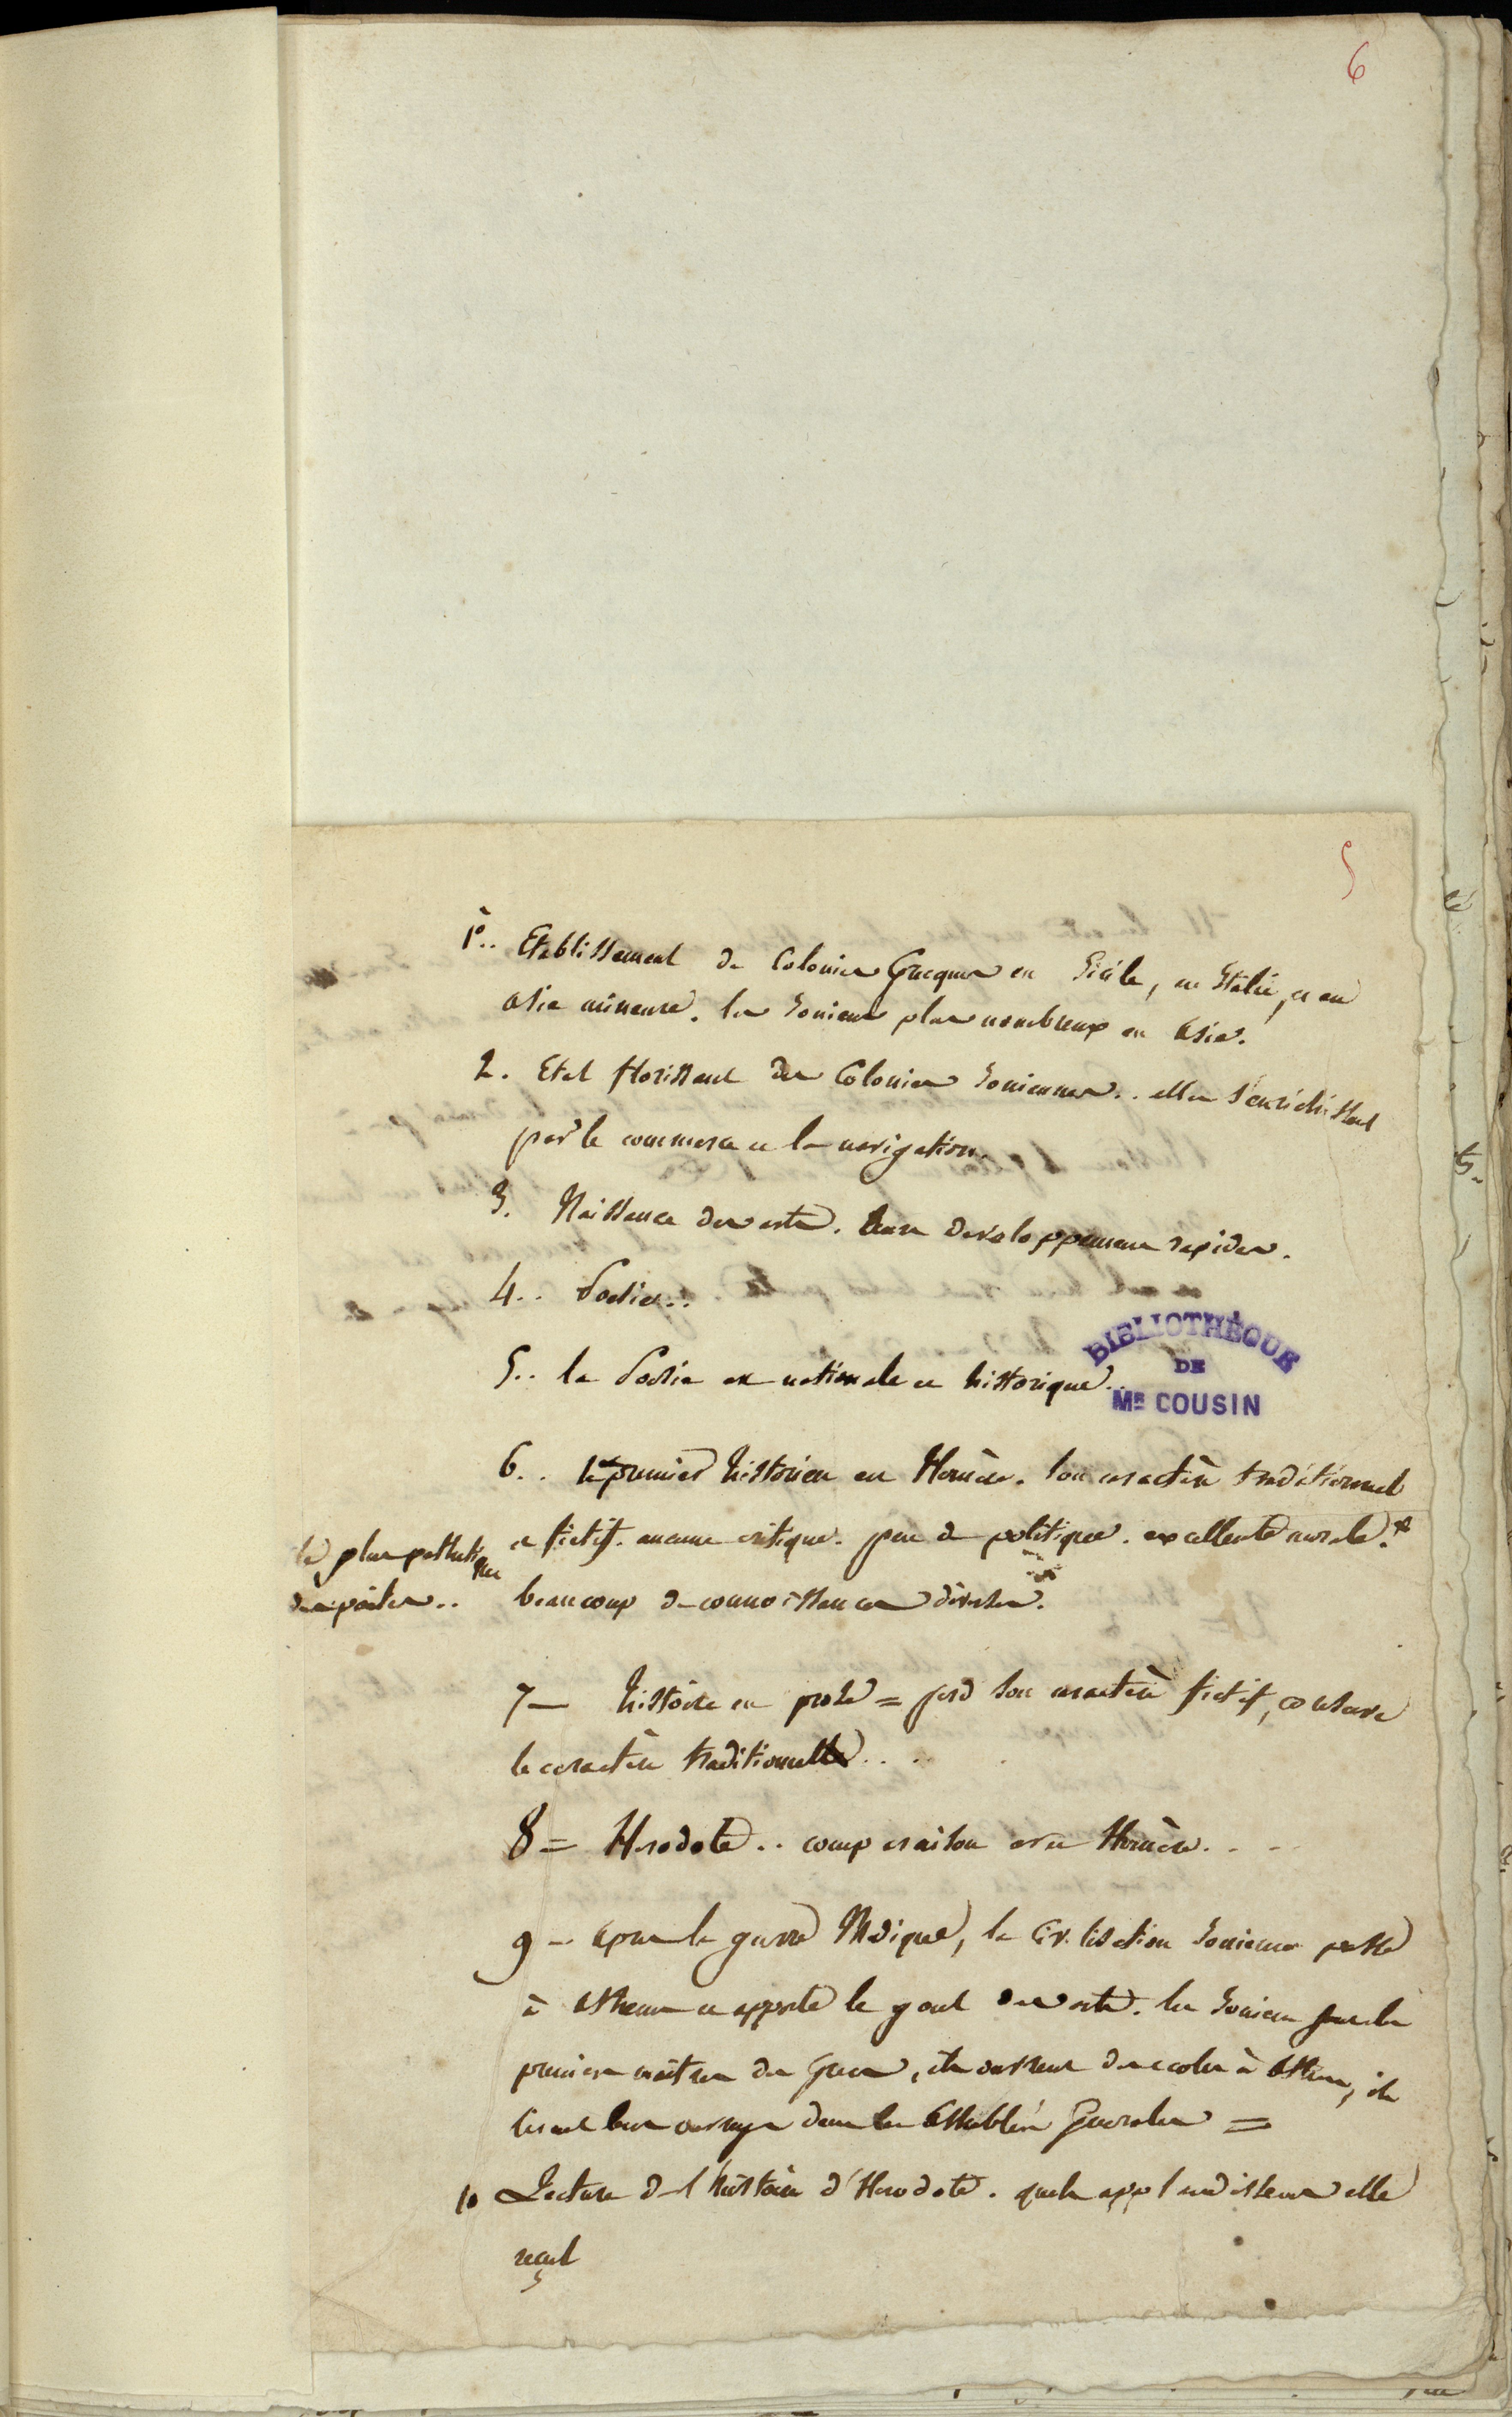 6
5
1°.. Etablissement de Colonies Grecques en Sicile, en Italie, et en
Asie mineure. les Ioniens plus nombreux en Asie.
2. Etat florissant des Colonies Ioniennes.. elles s'enrichissent
par le commerce et la navigation.
3. Naissance des arts. leurs developpemens rapides.
4.. Poesie..
5.. la Poesie est nationale et historique..
BIBLIOTHÈQUE
DE
MR COUSIN
6.. le premier historien est Homère. son caractère traditionnel
et fictif. aucune critique. peu de politique. excellente morale.*
le plus pathetique
des poètes..
beaucoup de connoissances diverses.
7— histoire en prose = perd son caractère fictif, conserve
le caractère traditionnel...
8 = Herodote.. comparaison avec Homère...
9 — après la guerre Medique, la Civilisation Ionienne passe
à Athenes et apporte le gout des arts. les Ioniens sont les
premiers maîtres des Grecs, ils ouvrent des ecoles à Athenes, ils
lisent leurs ouvrages dans les Assemblées Generales =
10 Lecture de l'histoire d'Herodote. quels applaudissemens elle
reçut